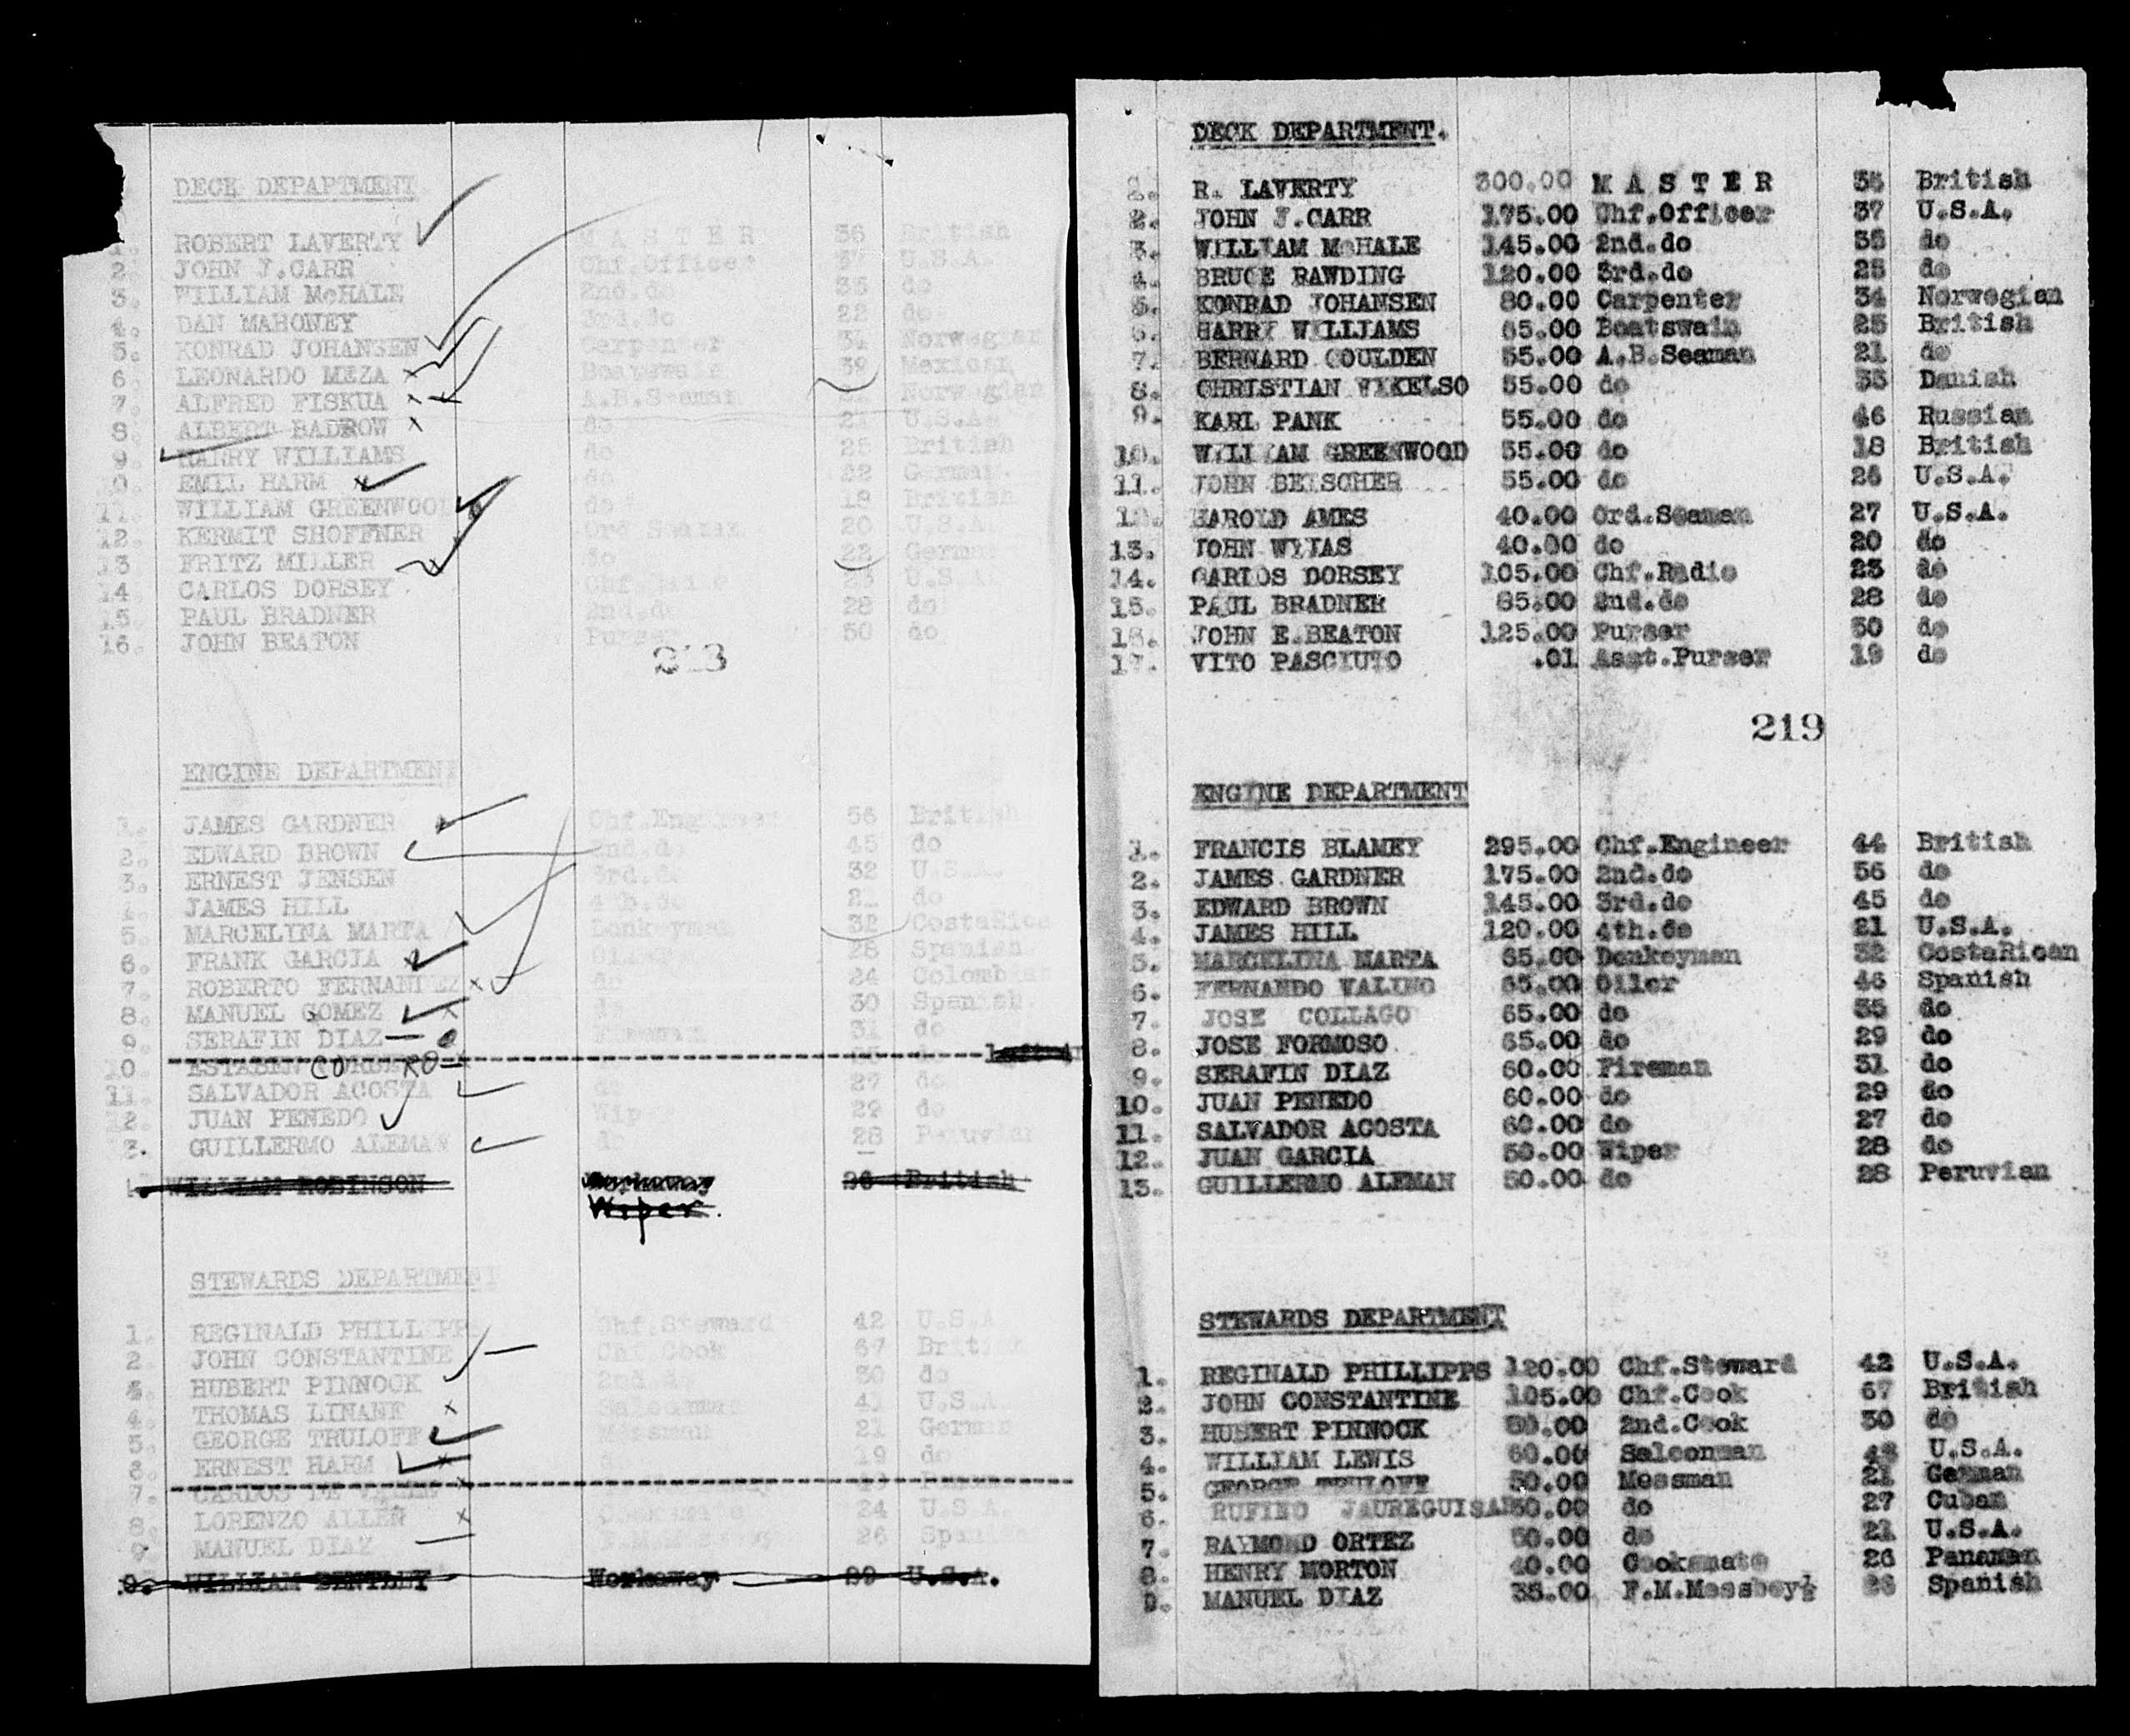 DECK DEPARTMENT
1. ROBERT LAVERTY M A S T E R 36 British
2. JOHN J.CARR Chf.Officer 37 U.S.A.
3. WILLIAM McHALE 2nd.do 35 do
4. DAN MAHONEY 3rd.do 22 do
5. KONRAD JOHANSEN Carpenter 34 Norwegian
6. LEONARDO MEZA Boatswain 39 Mexican
7. ALFRED FISKUA A.B.Seaman Norwegian
8. ALBERT BADROW do 21 U.S.A.
9. HARRY WILLIAMS do 25 British
10. EMIL HARM do 22 German
11. WILLIAM GREENWOOD do 18 British
12. KERMIT SHOFFNER Ord Seaman 20 U.S.A.
13 FRITZ MILLER do 22 German
14 CARLOS DORSEY Chf. 23 U.S.
15. PAUL BRADNER 2nd.do 28 do
16. JOHN BEATON Purser 50 do
213
ENGINE DEPARTMENT
1. JAMES GARDNER Chf.Engineer 56 British
2. EDWARD BROWN 2nd.do 45 do
3. ERNEST JENSEN 3rd.do 32 U.S.A.
4. JAMES HILL 4th.do 21 do
5. MARCELINA MARTA Donkeyman 32 CostaRica
6. FRANK GARCIA Oiler 28 Spanish
7. ROBERTO FERNANDEZ do 24 Colombian
8. MANUEL GOMEZ do 30 Spanish
9. SERAFIN DIAZ Fireman 31 do
10. ESTABEN CORDERO
11. SALVADOR ACOSTA do 27 do
12. JUAN PENEDO Wip 29 do
3. GUILLERMO ALEMAN do 28 Peruvian
WILLIAM ROBINSON Workaway 26 British
Wiper.
STEWARDS DEPARTMENT
1. REGINALD PHILLIPPS Chf.Steward 42 U.S.A
2. JOHN CONSTANTINE Chf.Cook 67 British
3. HUBERT PINNOCK 2nd.do 30 do
4. THOMAS LINANE Saloonman 41 U.S.A.
5. GEORGE TRULOFF Messman 21 German
6. ERNEST HARM 19 do
7. CARLOS
8. LORENZO ALLEN Cooksmate 24 U.S.A.
9. MANUEL DIAZ F.M.Messboy 26 Spanish
9. WILLIAM BENTLEY Workaway 29 U.S.A.
DECK DEPARTMENT.
1. R. LAVERTY 300.00 M A S T E R 36 British
2. JOHN J.CARR 175.00 Chf.Officer 37 U.S.A.
3. WILLIAM McHALE 145.00 2nd.do 35 do
4. BRUCE RAWDING 120.00 3rd.do 25 do
5. KONRAD JOHANSEN 80.00 Carpenter 34 Norwegian
6. HARRY WILLIAMS 65.00 Boatswain 25 British
7. BERNARD GOULDEN 55.00 A.B.Seaman 21 do
8. CHRISTIAN VIKELSO 55.00 do 35 Danish
9. KARL PANK 55.00 do 46 Russian
10. WILLIAM GREENWOOD 55.00 do 18 British
11. JOHN BEISCHER 55.00 do 26 U.S.A.
12. HAROLD AMES 40.00 Ord.Seaman 27 U.S.A.
13. JOHN WYTAS 40.00 do 20 do
14. CARLOS DORSEY 105.00 Chf.Radio 23 do
15. PAUL BRADNER 85.00 2nd.do 28 do
16. JOHN E.BEATON 125.00 Purser 50 do
17. VITO PASCIUTO .01 Asst.Purser 19 do
219
ENGINE DEPARTMENT
1. FRANCIS BLAMEY 295.00 Chf.Engineer 44 British
2. JAMES GARDNER 175.00 2nd.do 56 do
3. EDWARD BROWN 145.00 3rd.do 45 do
4. JAMES HILL 120.00 4th.do 21 U.S.A.
5. MARCELINA MARTA 65.00 Donkeyman 32 CostaRican
6. FERNANDO VALINO 65.00 Oiler 46 Spanish
7. JOSE COLLAGO 65.00 do 35 do
8. JOSE FORMOSO 65.00 do 29 do
9. SERAFIN DIAZ 60.00 Fireman 31 do
10. JUAN PENEDO 60.00 do 29 do
11. SALVADOR ACOSTA 60.00 do 27 do
12. JUAN GARCIA 50.00 Wiper 28 do
13. GUILLERMO ALEMAN 50.00 do 28 Peruvian
STEWARDS DEPARTMENT
1. REGINALD PHILLIPPS 120.00 Chf.Steward 42 U.S.A.
2. JOHN CONSTANTINE 105.00 Chf.Cook 67 British
3. HUBERT PINNOCK 80.00 2nd.Cook 30 do
4. WILLIAM LEWIS 60.00 Saloonman 48 U.S.A.
5. GEORGE TRULOFF 50.00 Messman 21 German
6. RUFINO JAUREGUISAR 50.00 do 27 Cuban
7. RAYMOND ORTEZ 50.00 do 21 U.S.A.
8. HENRY MORTON 40.00 Cooksmate 26 Panaman
9. MANUEL DIAZ 35.00 F.M.Messboy½ 26 Spanish